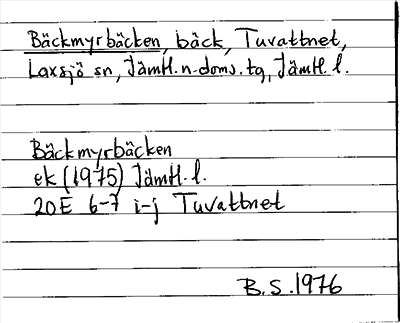 Bäckmyrbäcken, bäck, Tuvattnet,
Laxsjö sn, Jämtl.n.doms.tg, Jämtl.l.
Bäckmyrbäcken
ek (1975) Jämtl.l.
20E 6-7 i-j Tuvattnet
B.S.1976